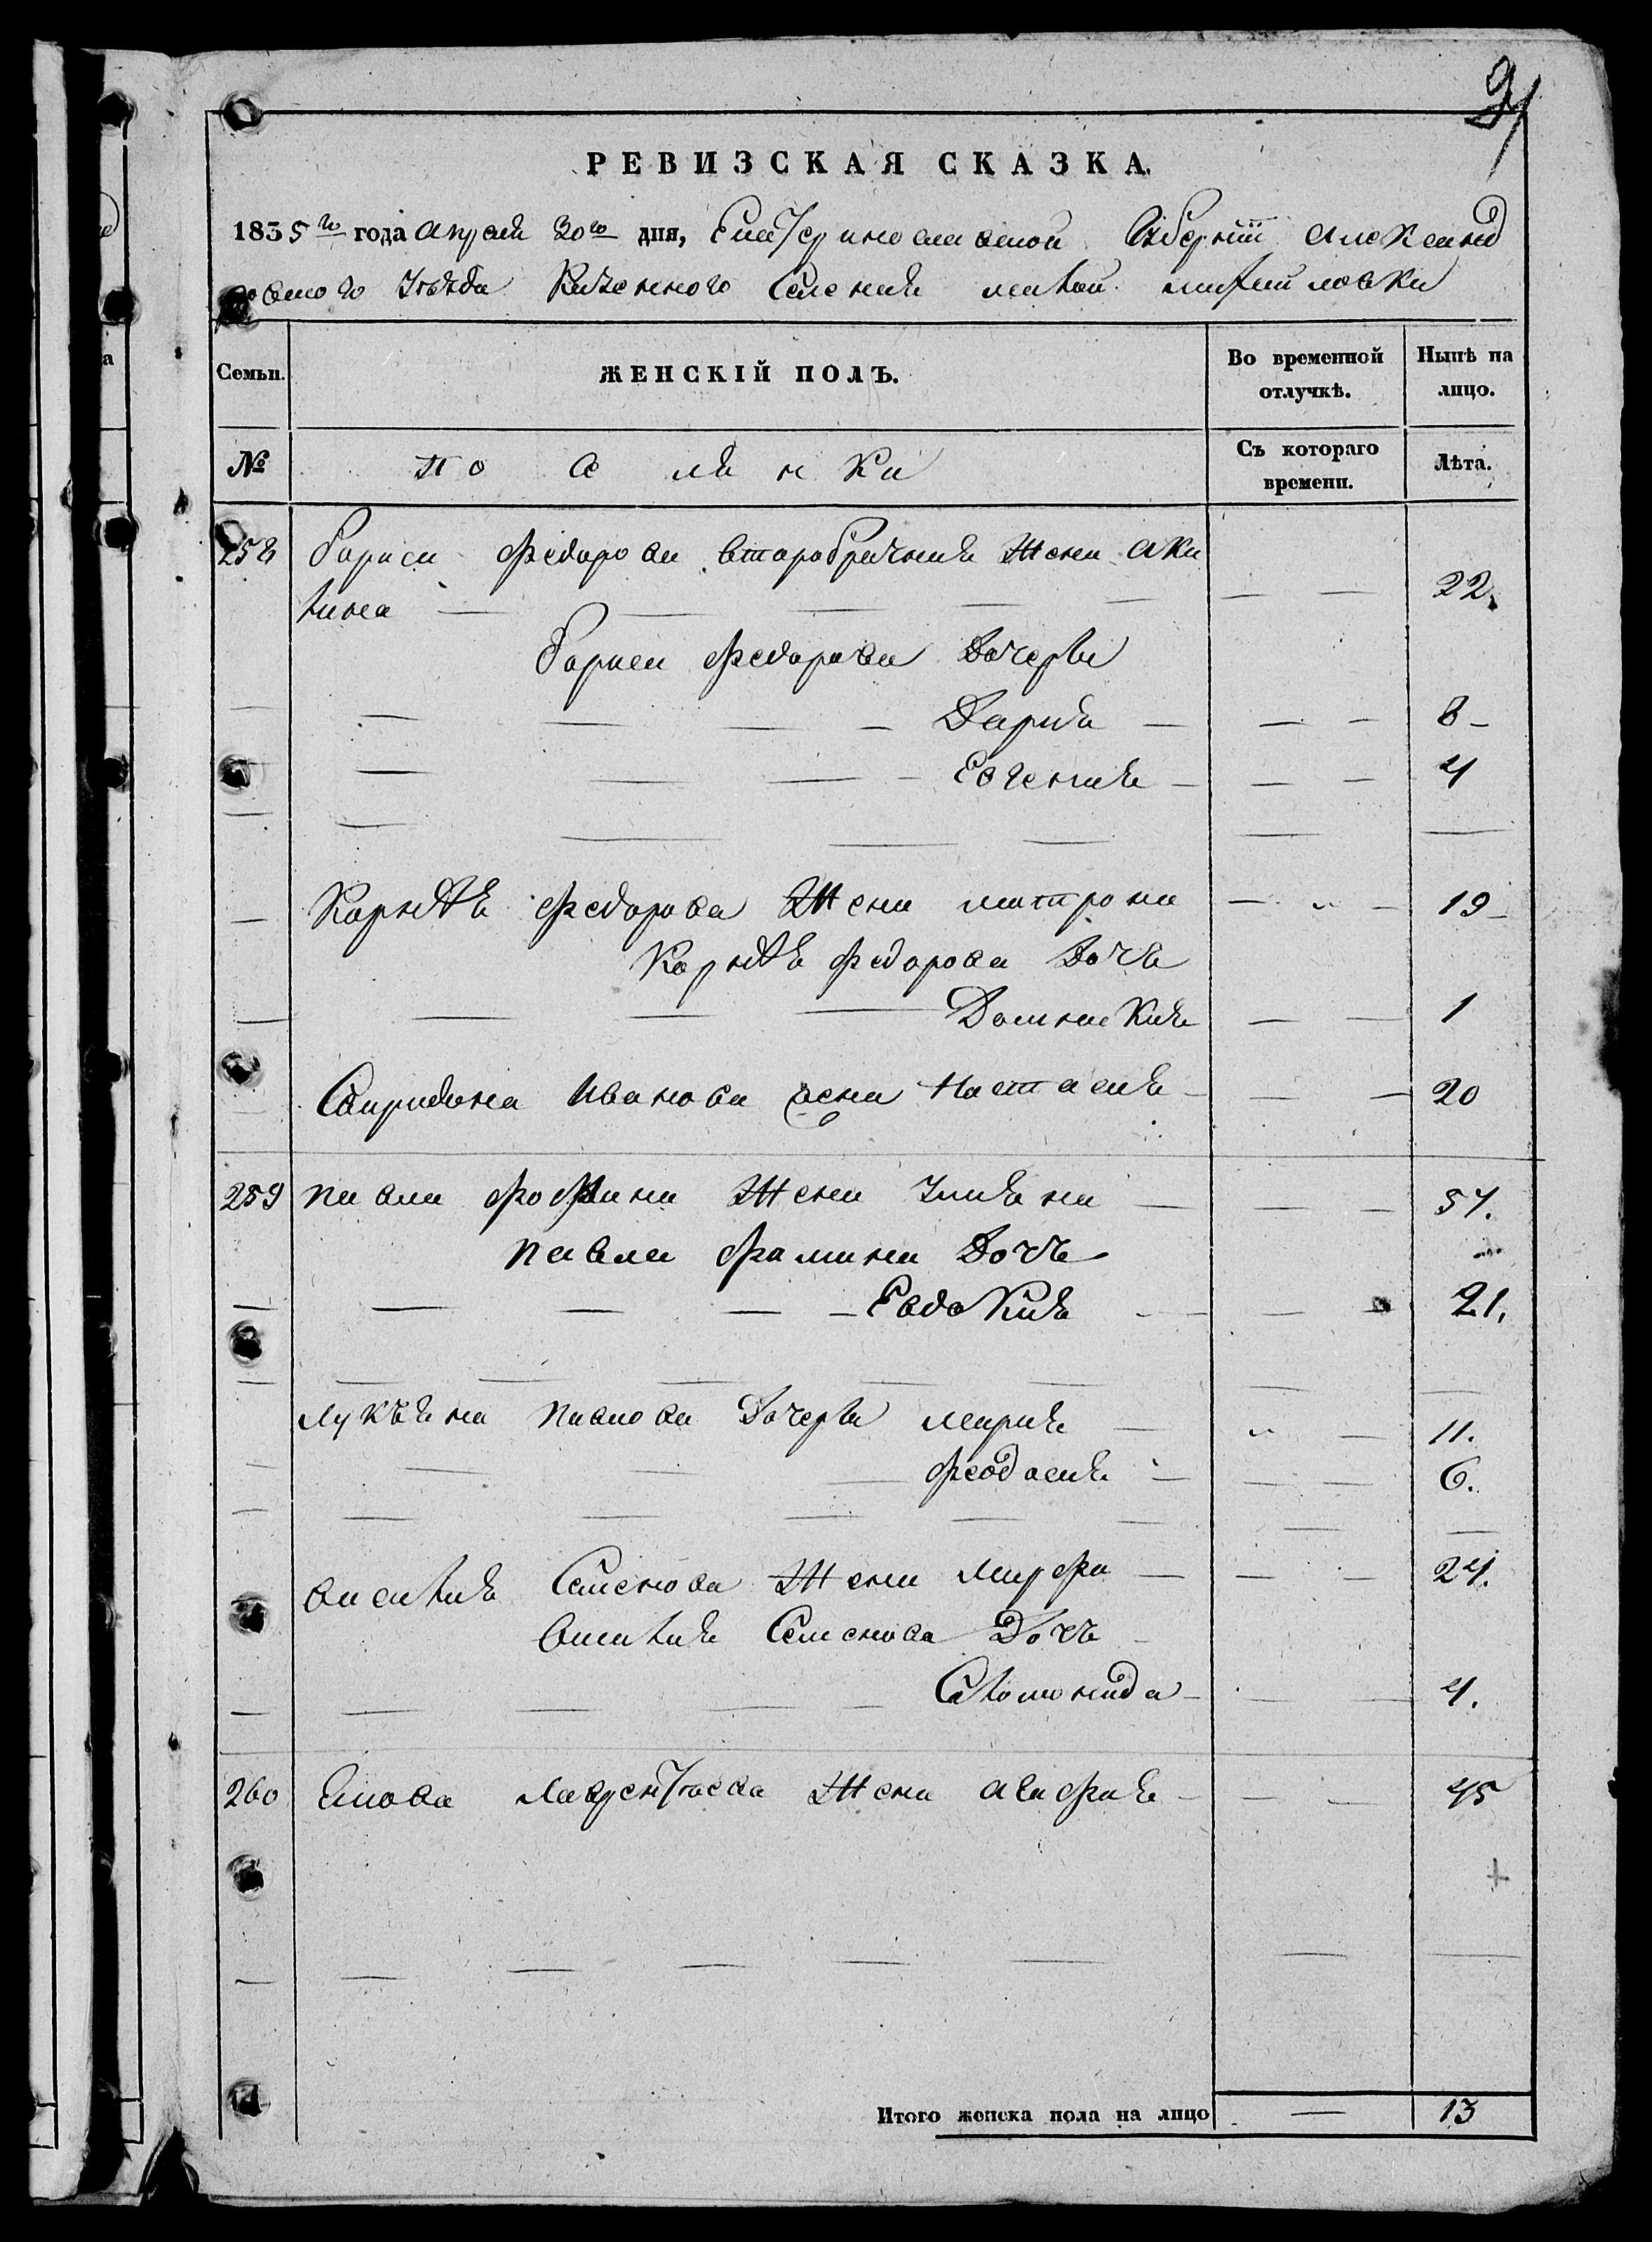 РЕВИЗСКАЯ СКАЗКА.
1835 го года апреля 30 го дня, Екатеринославской Губернии Александ
ровского уѣзда Казенного Селения малой михайловки
Семьи.
ЖЕНСКІЙ ПОЛЪ.
Во временной отлучкѣ.
Нынѣ на лицо.
№
поселянки
Съ котораго времени.
Лѣта.
258 бориса Федорова второбрачная Жена аку
лина 22.
бориса Федорова Дочери
Дария 8
Евгения 4
Корнѣя Федорова Жена матрона 19
Корнѣя Федорова Дочь
Домникия 1
Спиридона Иванова жена Настасия 20
259 павла Фомина Жена улияна 57.
павла Фомина Дочь
Евдокия 21.
Лукьяна павлова Дочери мария 11.
Феодосия 6.
василия Семенова Жена марфа 24.
василия Семенова Дочь
Соломонида 4.
260 якова Лаврентьева Жена агафия 45
Итого женска пола на лицо — 13